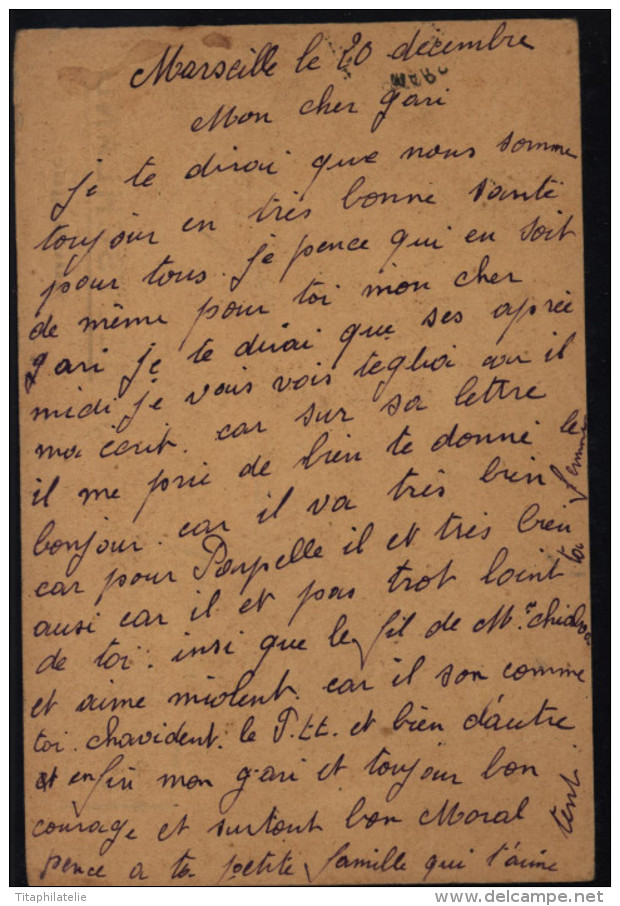 Marseille le 20 decembre
Mon cher gari
je te dirai que nous somme
toujour en très bonne santé
pour tous. je pence qui en soit
de même pour toi mon cher
gari je te dirai que ses aprèe
midi je vais vois car il
ma écrit. car sur sa lettre
il me prie de bien te donné le
bonjour. car il va très bien
car pour Parpelle il et très bien
ausi car il et pas trot loint
de toi. insi que le fil de Mr
et aime car il son comme
toi. le P.tt. et bien d'autre
et enfin mon gari et toujour bon
courage et surtout bon Moral
pence a ta petite famille qui t'aime
tent.
ta femme
Titaphilatelie
delcampe.net